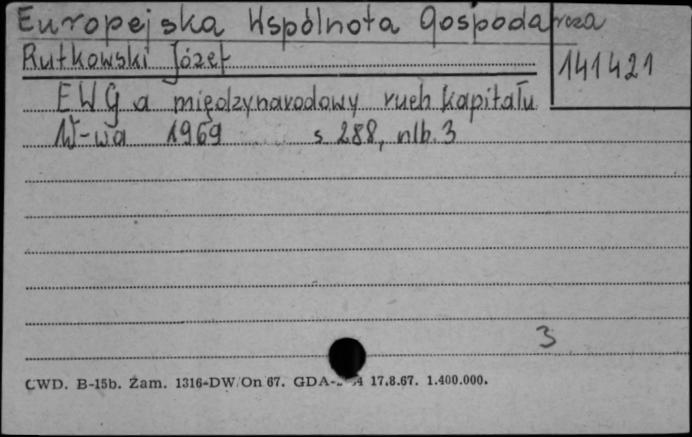 Europejska Wspólnota Gospodarcza
Rutkowski Józef
141421
EWG a międzynarodowy ruch kapitału
W-wa 1969 s 288, nlb. 3
3
CWD. B-15b. Zam. 1316-DW/On 67. GDA- 17.8.67. 1.400.000.